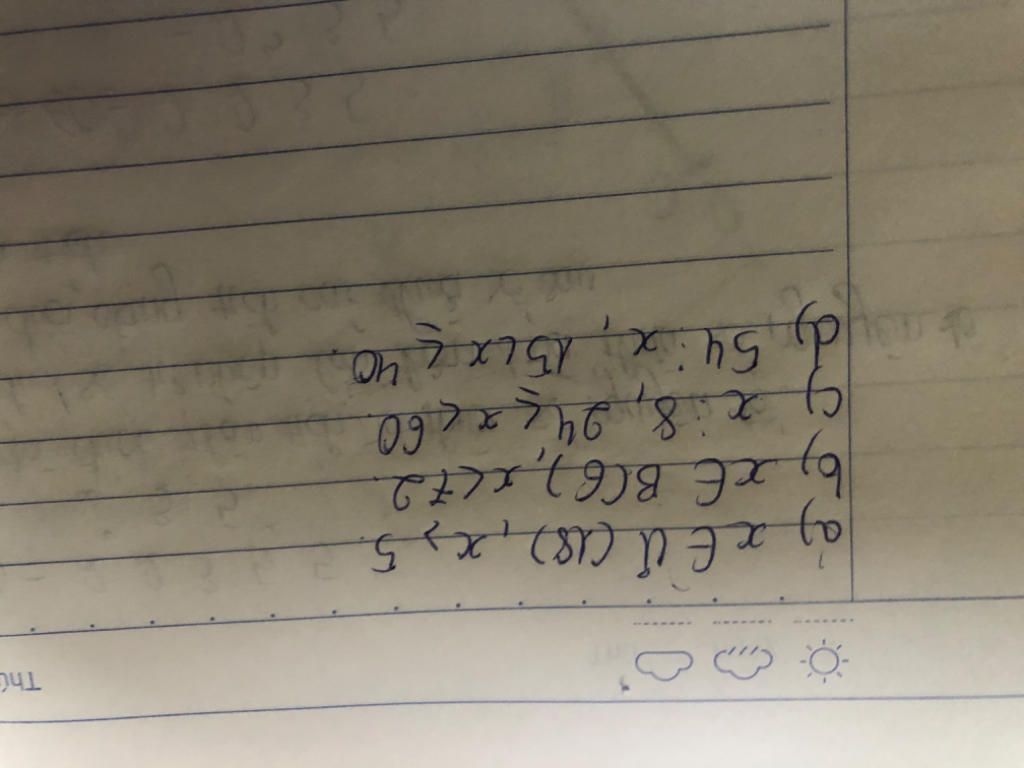 Thứ
a) x ∈ Ư (18), x > 5.
b) x ∈ B(6), x < 72.
c) x ⋮ 8, 24 ≤ x < 60
d) 54 ⋮ x, 15 < x ≤ 40.